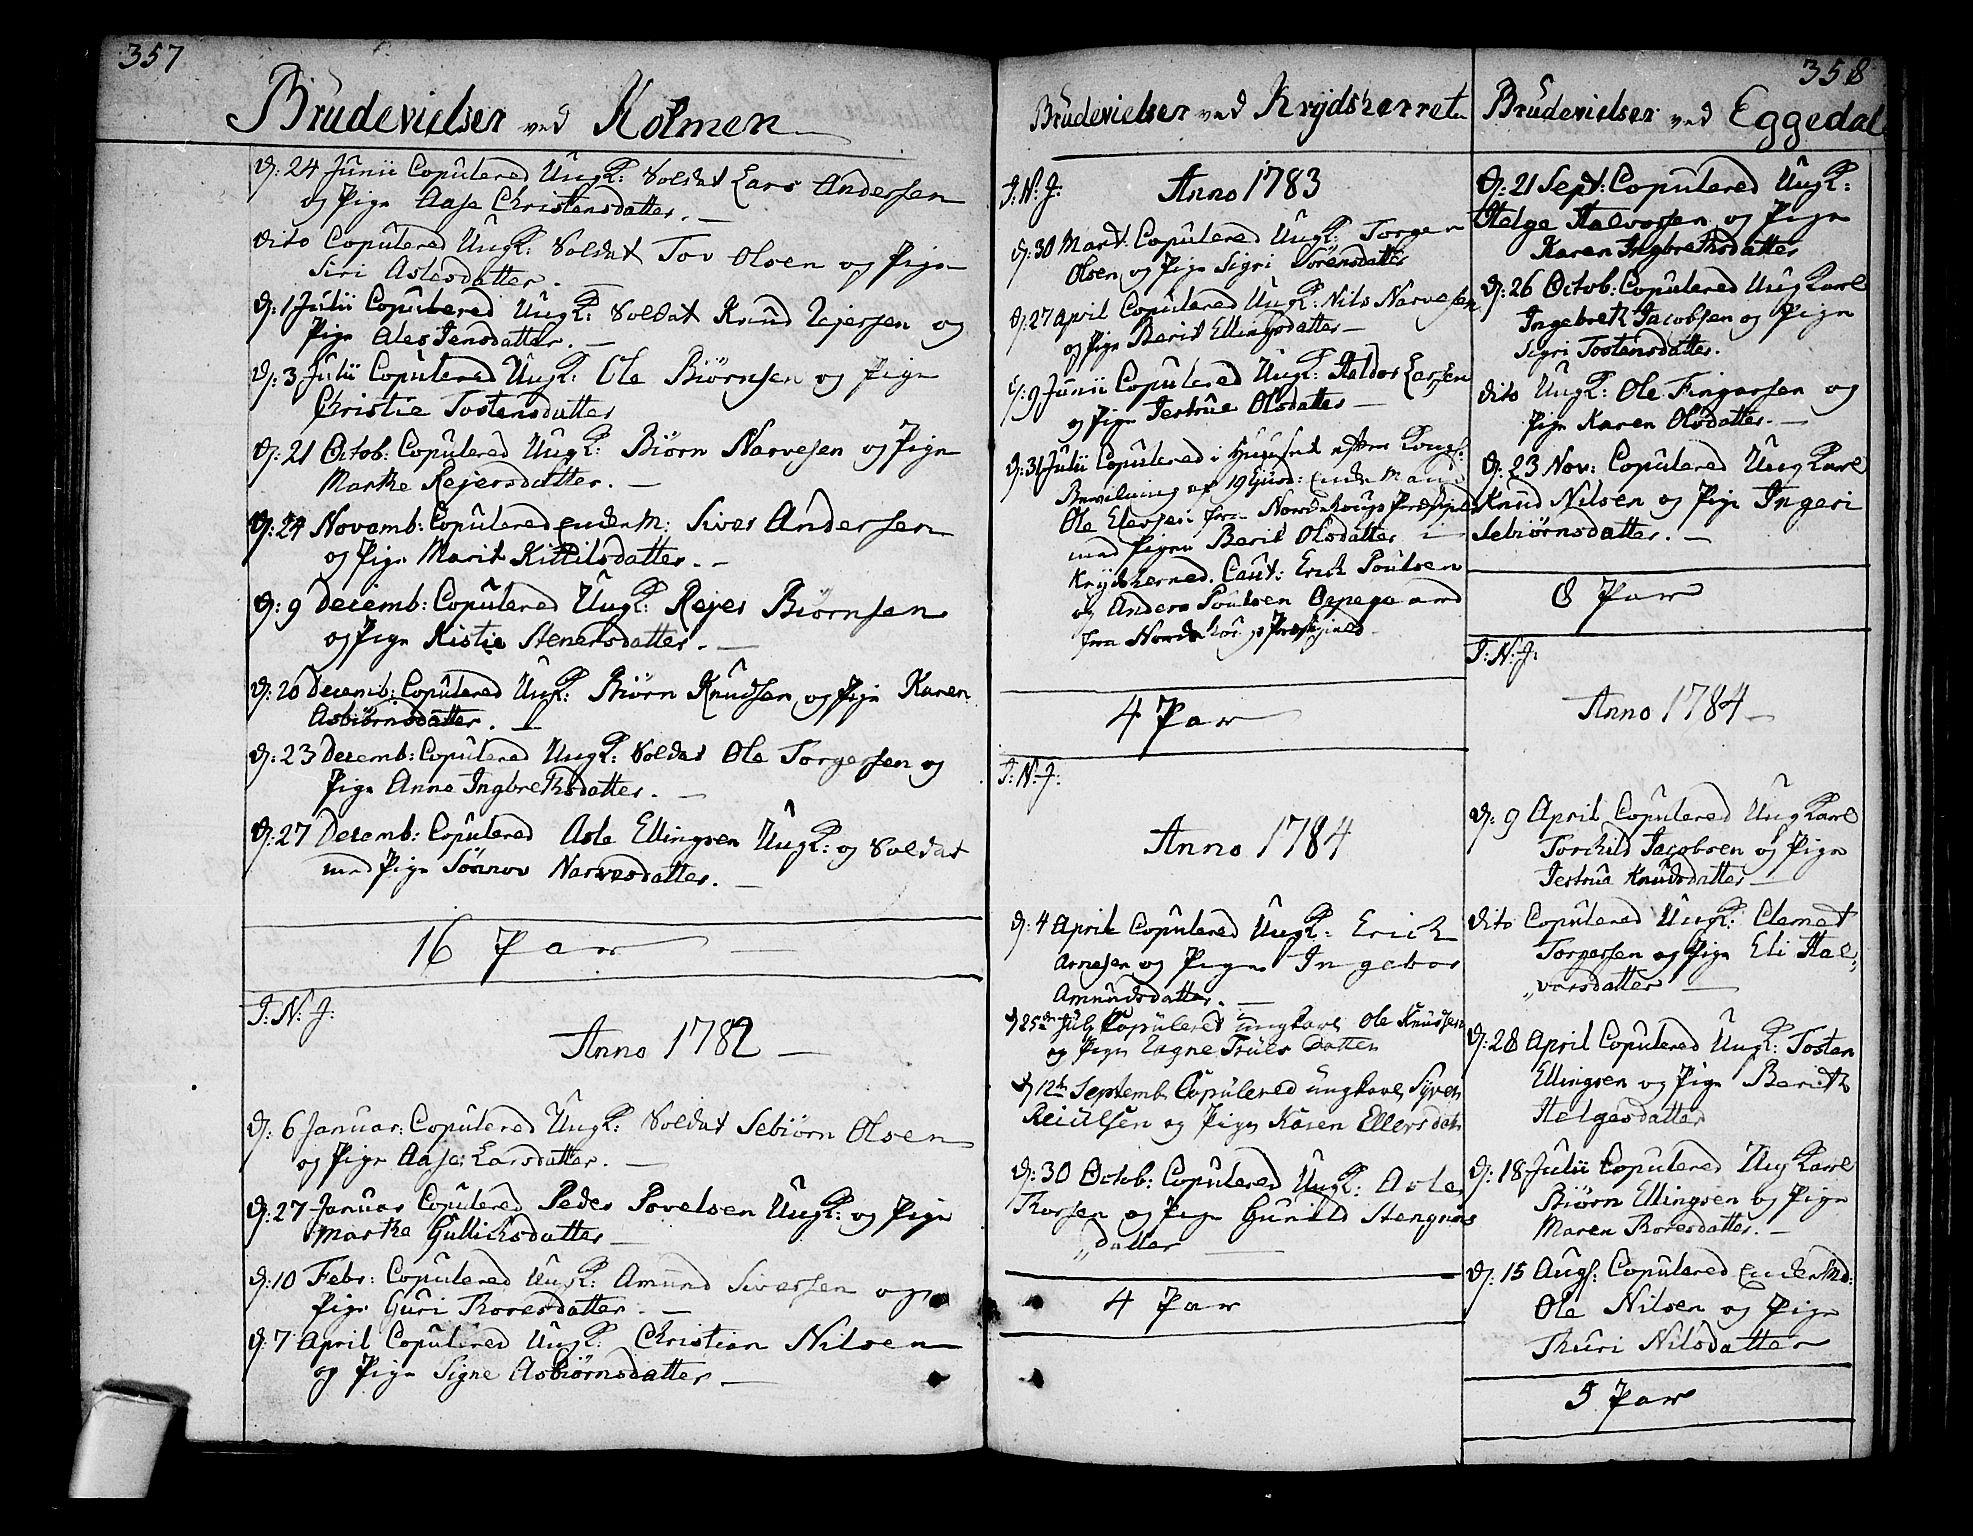 357
Brudevielser ved Holmen
d: 24 Junii Copulered Ungk: Soldat Lars Andersen
og Pige Aase Christensdatter. —
dito Copulered Ungk: Soldat Tov Olsen og Pige
Siri Aslesdatter. —
d: 1 Julii Copulered Ungk: Soldat Knud Rejersen og
Pige Ales Jensdatter. —
d: 3 Julii Copulered Ungk: Ole Biørnsen og Pige
Christie Tostensdatter
d: 21 Octob: Copulered Ungk: Biørn Narvesen og Pige
Marthe Rejersdatter. —
d: 24 Novemb: Copulered Enckem: Siver Andersen
og Pige Marit Kittilsdatter. —
d: 9 Decemb: Copulered Ungk: Rejer Biørnsen
og Pige Kistie Stenersdatter. —
d: 20 Decemb: Copulered Ungk: Biørn Knudsen og Pige Karen
Asbiørnsdatter. —
d: 23 Decemb: Copulered Ungk: Soldat Ole Torgersen og
Pige Anne Ingbrethsdatter. —
d: 27 Decemb: Copulered Asle Ellingsen Ungk: og Soldat
med Pige Sønnov Narvesdatter. —
16 Par —
I: N: J:
Anno 1782 —
d: 6 Januar: Copulered Ungk: Soldat Sebiørn Olsen
og Pige Aase Larsdatter. —
d: 27 Januar Copulered Peder Povelsen Ungk: og Pige
Marthe Gullichsdatter —
d: 10 Febr: Copulered Ungk: Amund Siversen og
Pige Guri Thoresdatter. —
d: 7 April Copulered Ungk: Christian Nilsen
og Pige Signe Asbiørnsdatter —
Brudevielser ved Krydsherret
I: N: J: Anno 1783
d: 30 Mart. Copulered Ungk: Torger
Olsen og Pige Sigri Sörensdatter
d: 27 April Copulered Ungk: Nils Narvesen
og Pige Berit Ellingsdatter —
d: 9 Junii Copulered Ungk: Haldor Larsen
og Pige Jertrue Olsdatter —
d: 31 Julii Copulered i Huuset efter Kongl:
Bevilning af 19 Enckemand
Ole fra Nordrehoug Præstegield
med Pigen Berit Olsdatter i
Krydsherred. Caut: Erich Poulsen
og Anders Poulsen
fra Præstegield
4 Par
I: N: J:
Anno 1784
d: 4 April Copulered Ungk: Erich
Arnesen og Pige Ingebor
Amundsdatter. —
d 25de July Copulered ungkarl Ole Knudsen
og Pige Trulsdatter
d 12te Septemb Copulered ungkarl Syver
og Pige Karen Ellersdatr
d: 30 Octob: Copulered Ungk: Asle
Thorsen og Pige Gunild Stengrims
„datter —
4 Par
358
Brudevielser ved Eggedal
d: 21 Sept: Copulered Ungk:
Helge Halvorsen og Pige
Karen Ingbrethsdatter
d: 26 Octob: Copulered Ungkarl
Ingebreth Jacobsen og Pige
Sigri Tostensdatter.
dito Ungk: Ole Fingarsen og
Pige Karen Olsdatter. —
d: 23 Nov: Copulered Ungkarl
Knud Nilsen og Pige Ingeri
Sebiørnsdatter. —
8 Par
I: N: J:
Anno 1784 —
d: 9 April Copulered Ungkarl
Torchild Jacobsen og Pige
Jertrue Knudsdatter —
dito Copulered Ungk: Clemet
Torgersen og Pige Eli Hal„
„vorsdatter —
d: 28 April Copulered Ungk: Tosten
Ellingsen og Pige Berith
Helgesdatter
d: 18 Julii Copulered Ungkarl
Biørn Ellingsen og Pige
Maren Thoresdatter. —
d: 15 Augs: Copulered Enckemd:
Ole Nilsen og Pige
Thuri Nilsdatter
5 Par